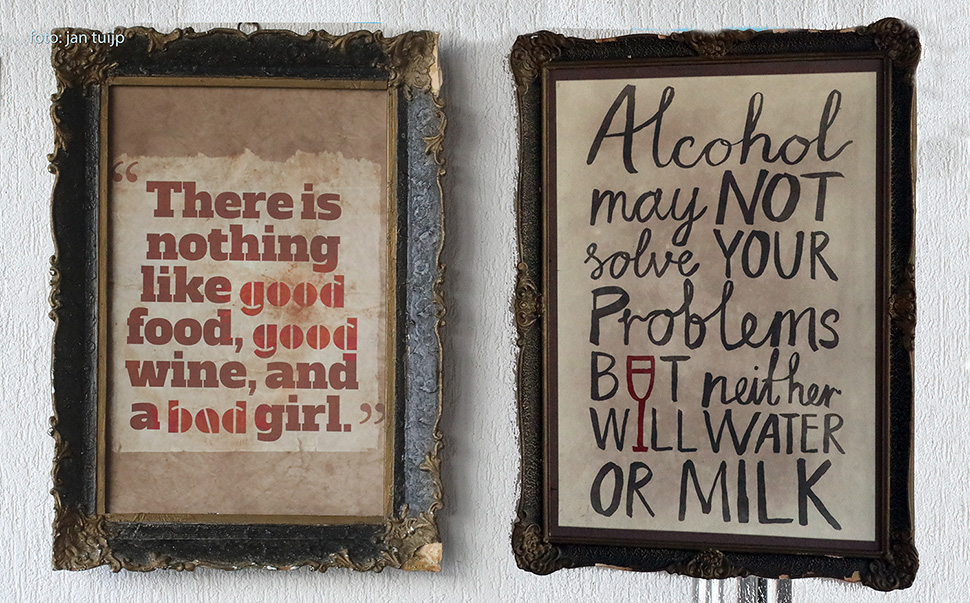 foto: jan tuijp
“There is
nothing
like good
food, good
wine, and
a bad girl.”
Alcohol
may NOT
solve YOUR
Problems
BUT neither
WILL WATER
OR MILK